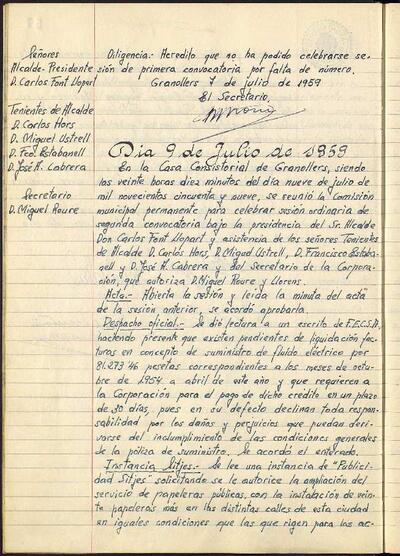 Señores
Alcalde-Presidente
D. Carlos Font Llopart
Tenientes de Alcalde
D. Carlos Hors
D. Miguel Ustrell
D. Fco. Estabanell
D. José A. Cabrera
Secretario
D. Miguel Roure
Diligencia.- Acredito que no ha podido celebrarse se-
sión de primera convocatoria por falta de número.
Granollers 7 de julio de 1959
El Secretario,
Dia 9 de Julio de 1959
En la Casa Consistorial de Granollers, siendo
las veinte horas diez minutos del día nueve de julio de
mil novecientos cincuenta y nueve, se reunió la Comisión
municipal permanente para celebrar sesión ordinaria de
segunda convocatoria bajo la presidencia del Sr. Alcalde
Don Carlos Font Llopart y asistencia de los señores Tenientes
de Alcalde D. Carlos Hors, D. Miguel Ustrell, D. Francisco Estaba-
nell y D. José A. Cabrera y del Secretario de la Corpora-
ción, que autoriza D. Miguel Roure y Llorens.
Acta.- Abierta la sesión y leída la minuta del acta
de la sesión anterior, se acordó aprobarla.
Despacho oficial.- Se dió lectura a un escrito de F.E.C.S.A.
haciendo presente que existen pendientes de liquidación fac-
turas en concepto de suministro de fluído eléctrico por
81.273'46 pesetas correspondientes a los meses de octu-
bre de 1954 a abril de este año y que requieren a
la Corporación para el pago de dicho crédito en un plazo
de 30 días, pues en su defecto declinan toda respon-
sabilidad por los daños y perjuicios que puedan deri-
varse del incumplimiento de las condiciones generales
de la póliza de suministro. Se acordó el enterado.
Instancia Sitjes.- Se lee una instancia de "Publici-
dad Sitjes" solicitando se le autorice la ampliación del
servicio de papeleras públicas, con la instalación de vein-
te papeleras más en las distintas calles de esta ciudad
en iguales condiciones que las que rigen para las ac-